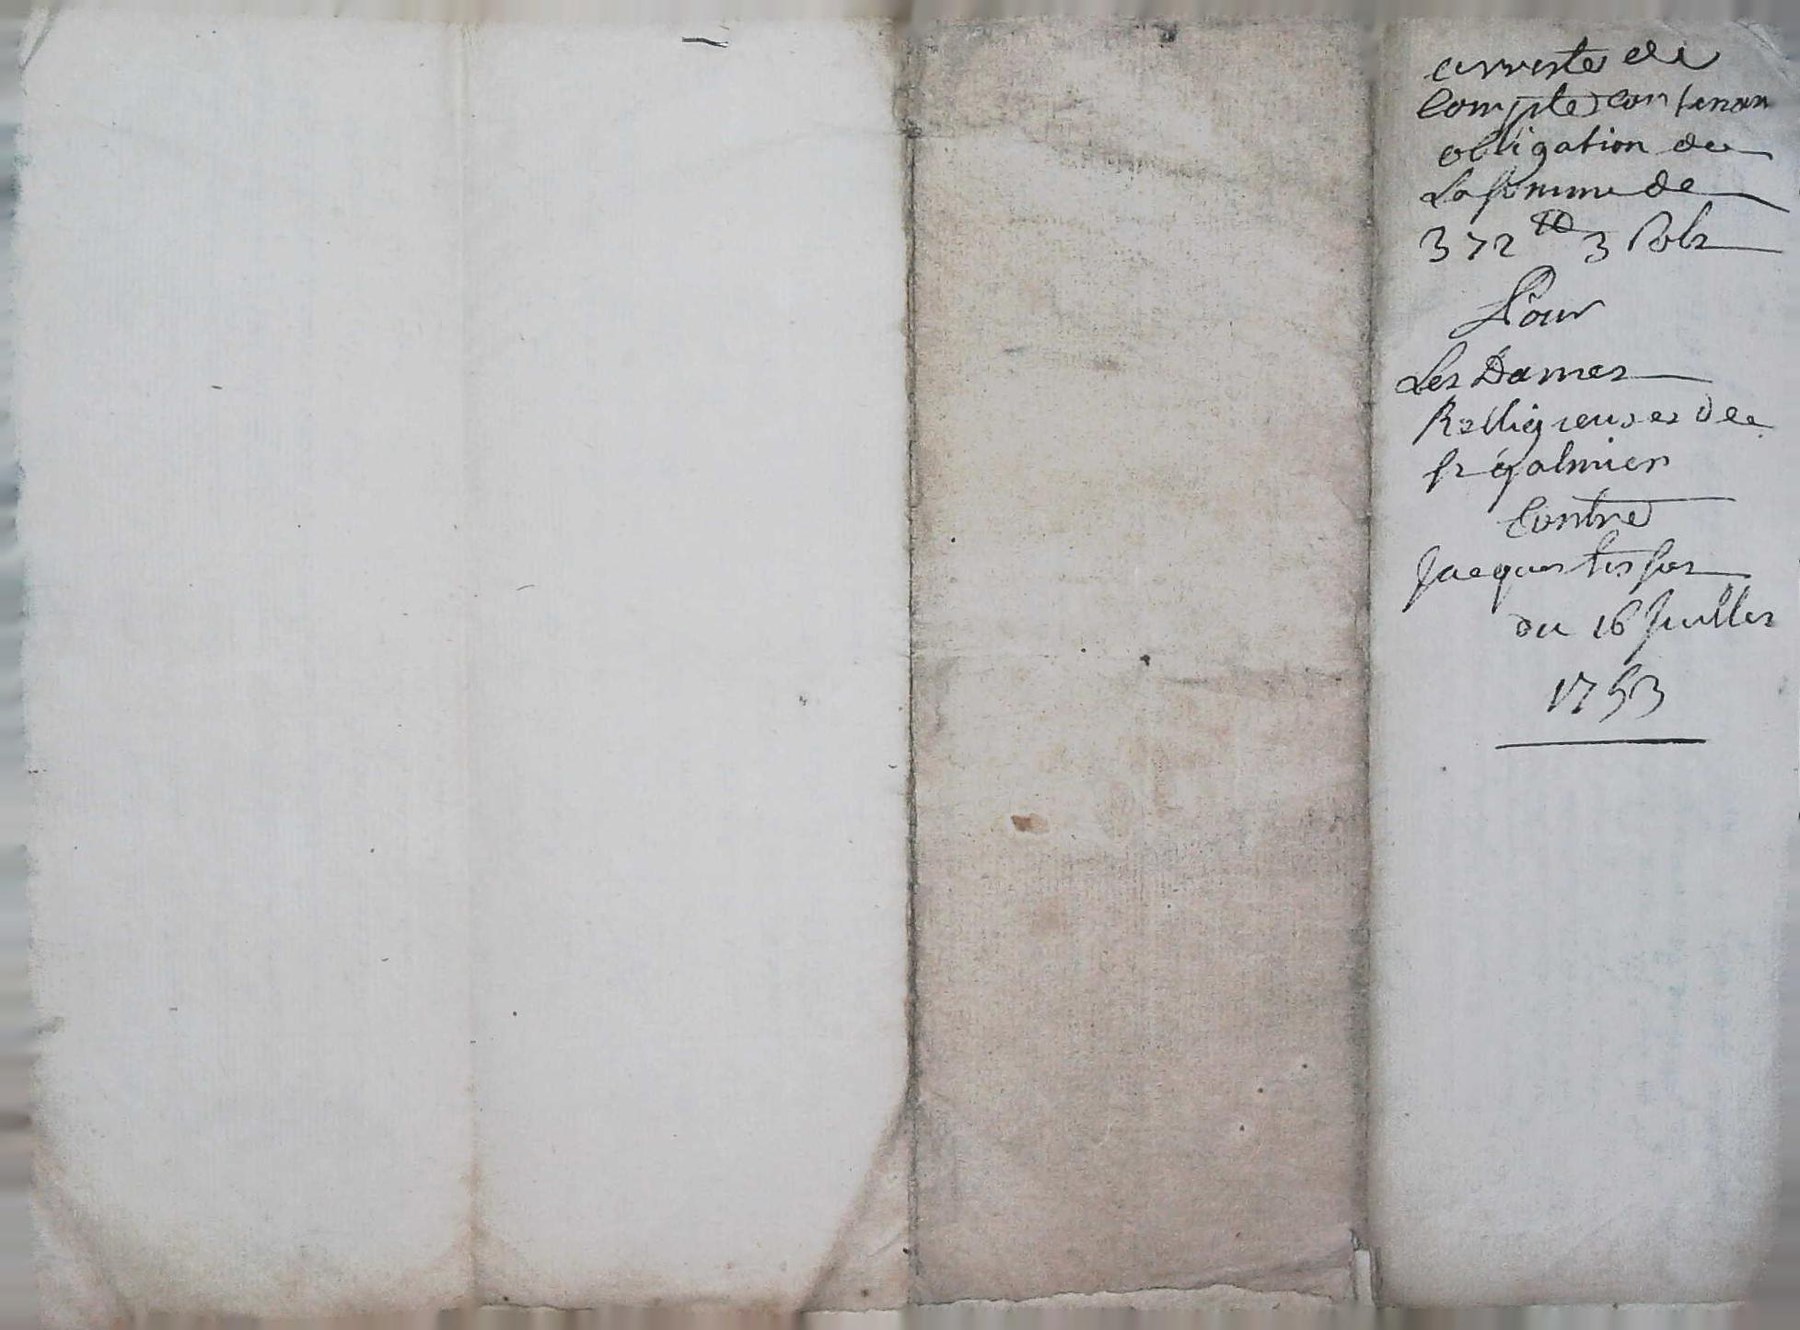 arresté de
Compte contenan
obligation de
La somme de
372 ₶ 3 sols
Pour
Les Dames
Relligieuses de
st galmier
Contre
Jacques
du 16 Juillet
1753